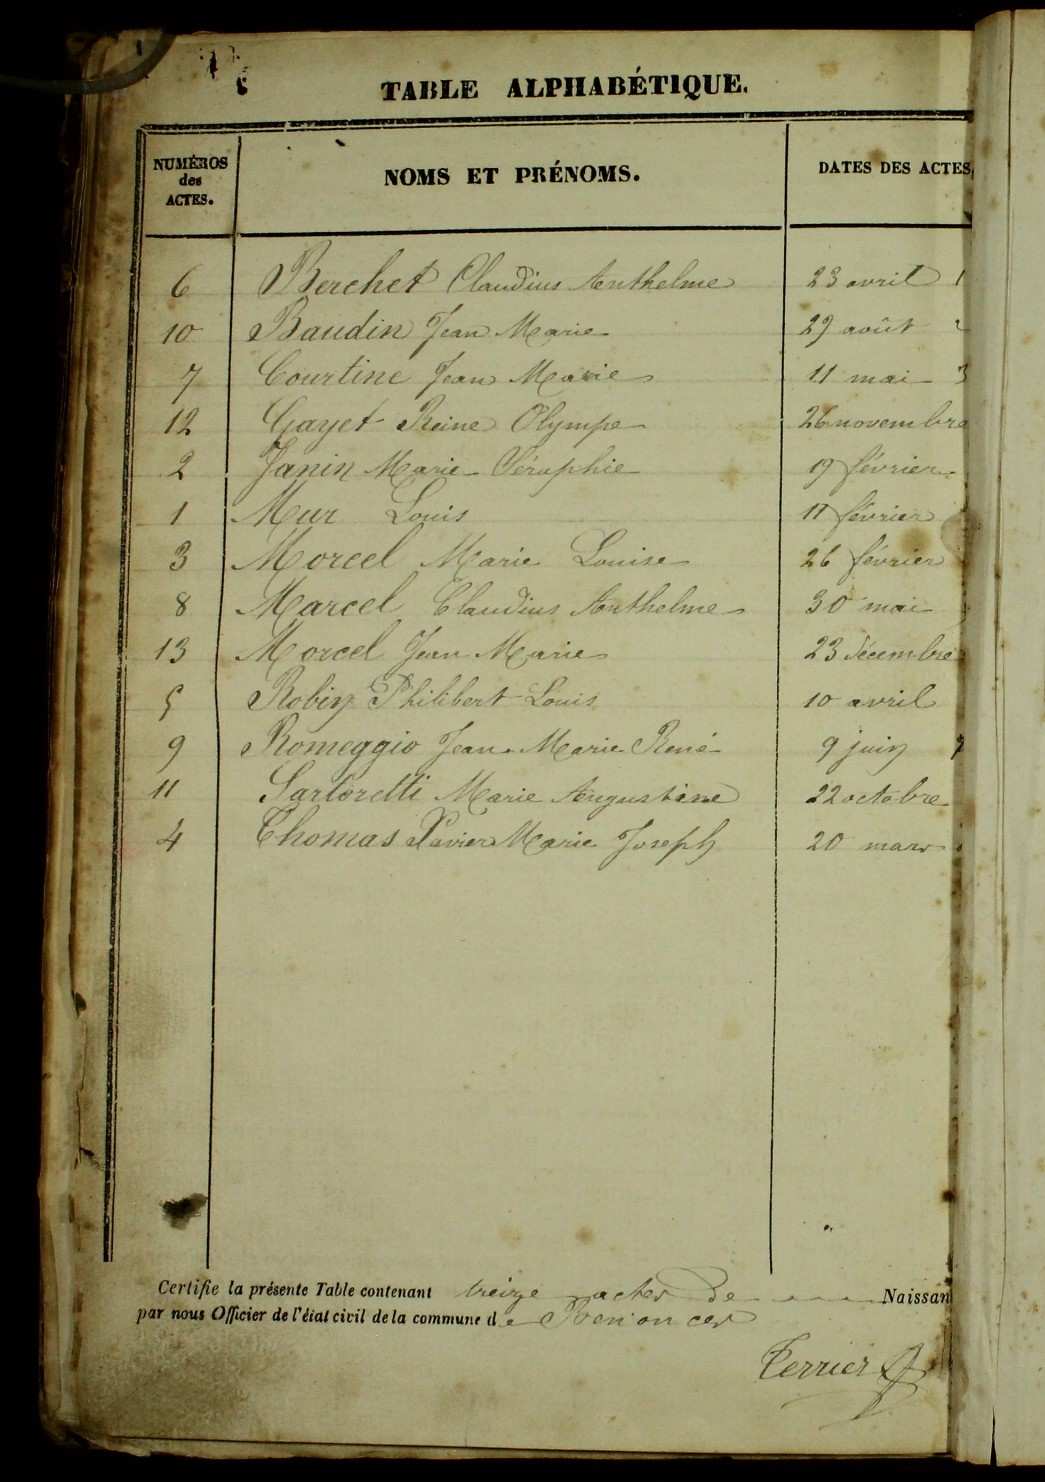 TABLE ALPHABÉTIQUE.
NUMÉROS des ACTES. NOMS ET PRÉNOMS. DATES DES ACTES
6 Berchet Claudius Anthelme 23 avril 1
10 Baudin Jean Marie 29 août 2
7 Courtine Jean Marie 11 mai 3
12 Gayet Reine Olympe 26 novembre
2 Janin Marie Séraphie 19 février
1 Mur Louis 11 février
3 Morcel Marie Louise 26 février
8 Marcel Claudius Anthelme 30 mai
13 Morcel Jean Marie 23 décembre
5 Robin Philibert Louis 10 avril
9 Romeggio Jean Marie René 9 juin
11 Sartoretti Marie Augustine 22 octobre
4 Thomas Xavier Marie Joseph 20 mars
Certifie la présente Table contenant treize actes de Naissan
par nous Officier de l'état civil de la commune de
Terrier